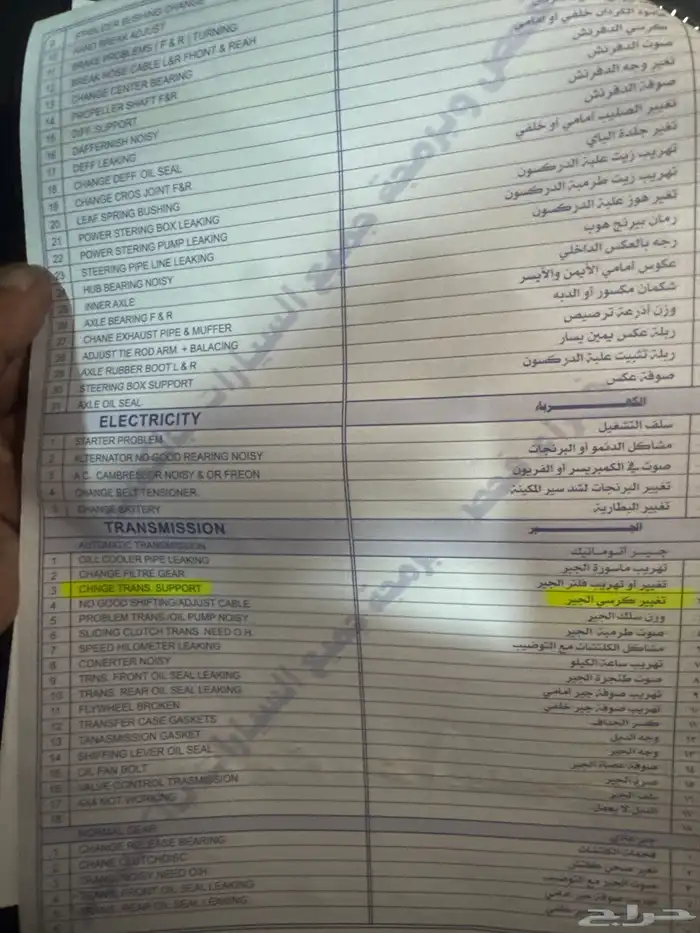 9 STABI DER BUSHING CHANGE
10 HAND BREAK ADJUST
11 BRAKE PROBLEMS | F & R | TURNING
12 BREAK HOSE CABLE L&R FHONT & REAH
13 CHANGE CENTER BEARING خلفي أو امامي
14 PROPELLER SHAFT F&R كرسي الدفرنش
15 DIFF. SUPPORT صوت الدفرنش
16 DAFFERNISH NOISY تغير وجه الدفرنش
17 DEFF LEAKING صوفة الدفرنش
18 CHANGE DEFF. OIL SEAL تغيير الصليب امامي أو خلفي
19 CHANGE CROS JOINT F&R تغير جلدة الياي
20 LEAF SPRING BUSHING تهريب زيت علبة الدركسون
21 POWER STERING BOX LEAKING تهريب زيت طرمبة الدركسون
22 POWER STERING PUMP LEAKING تغير هوز علبة الدركسون
23 STEERING PIPE LINE LEAKING رمان بيرنج هوب
HUB BEARING NOISY رجه بالعكس الداخلي
INNER AXLE عكوس امامي الأيمن والأيسر
AXLE BEARING F & R شكمان مكسور أو الدبه
CHANE EXHAUST PIPE & MUFFER وزن أذرعة ترصيص
ADJUST TIE ROD ARM + BALACING ربلة عكس يمين يسار
AXLE RUBBER BOOT L & R ربلة تثبيت علبة الدركسون
STEERING BOX SUPPORT صوفة عكس
AXLE OIL SEAL
ELECTRICITY الكهربـــاء
1 STARTER PROBLEM سلف التشغيل
2 ALTERNATOR NO GOOD REARING NOISY مشاكل الدنمو أو البرنجات
3 A.C. CAMBRESEOR NOISY & OR FREON صوت في الكمبريسر أو الفريون
4 CHANGE BELT TENSIONER تغيير البرنجات لشد سير المكينة
5 CHANGE BATTERY تغيير البطارية
TRANSMISSION الجـــير
AUTOMATIC TRANSMISSION جـير اتوماتيك
1 OILL COOLER PIPE LEAKING تهريب ماسورة الجير
2 CHANGE FILTRE GEAR تغيير أو تهريب فلتر الجير
3 CHNGE TRANS. SUPPORT تغيير كرسي الجير
4 NO GOOD SHIFTING/ADJUST CABLE وزن سلك الجير
5 PROBLEM TRANS./OIL PUMP NOISY صوت طرمبة الجير
6 SLIDING CLUTCH TRANS. NEED O.H. مشاكل الكلتشات مع التوضيب
7 SPEED HILOMETER LEAKING تهريب ساعة الكيلو
8 CONERTER NOISY صوت طنجرة الجير
9 TRNS. FRONT OIL SEAL LEAKING تهريب صوفة جير امامي
10 TRANS. REAR OIL SEAL LEAKING تهريب صوفة جير خلفي
11 FLYWHEEL BROKEN كسر الحداف
12 TRANSFER CASE GASKETS وجه الدبل
13 TANASMISSION GASKET وجه الجير
14 SHIFFING LEVER OIL SEAL صوفة عصاة الجير
15 OIL FAN BOLT صرة الجير
16 VALVE CONTROL TRASMISSION
17 4X4 NOT WORKING الدبل لا يعمل
18
NORMAL GEAR جير عادي
1 CHANGE RELEASE BEARING
2 CHANE CLUTCHDISC
3 TRANS. NOISY NEED O.H. صوت الجير مع التوضيب
4 TRANS. FRONT OIL SEAL LEAKING
5 TRANS. REAR OIL SEAL LEAKING
حراج